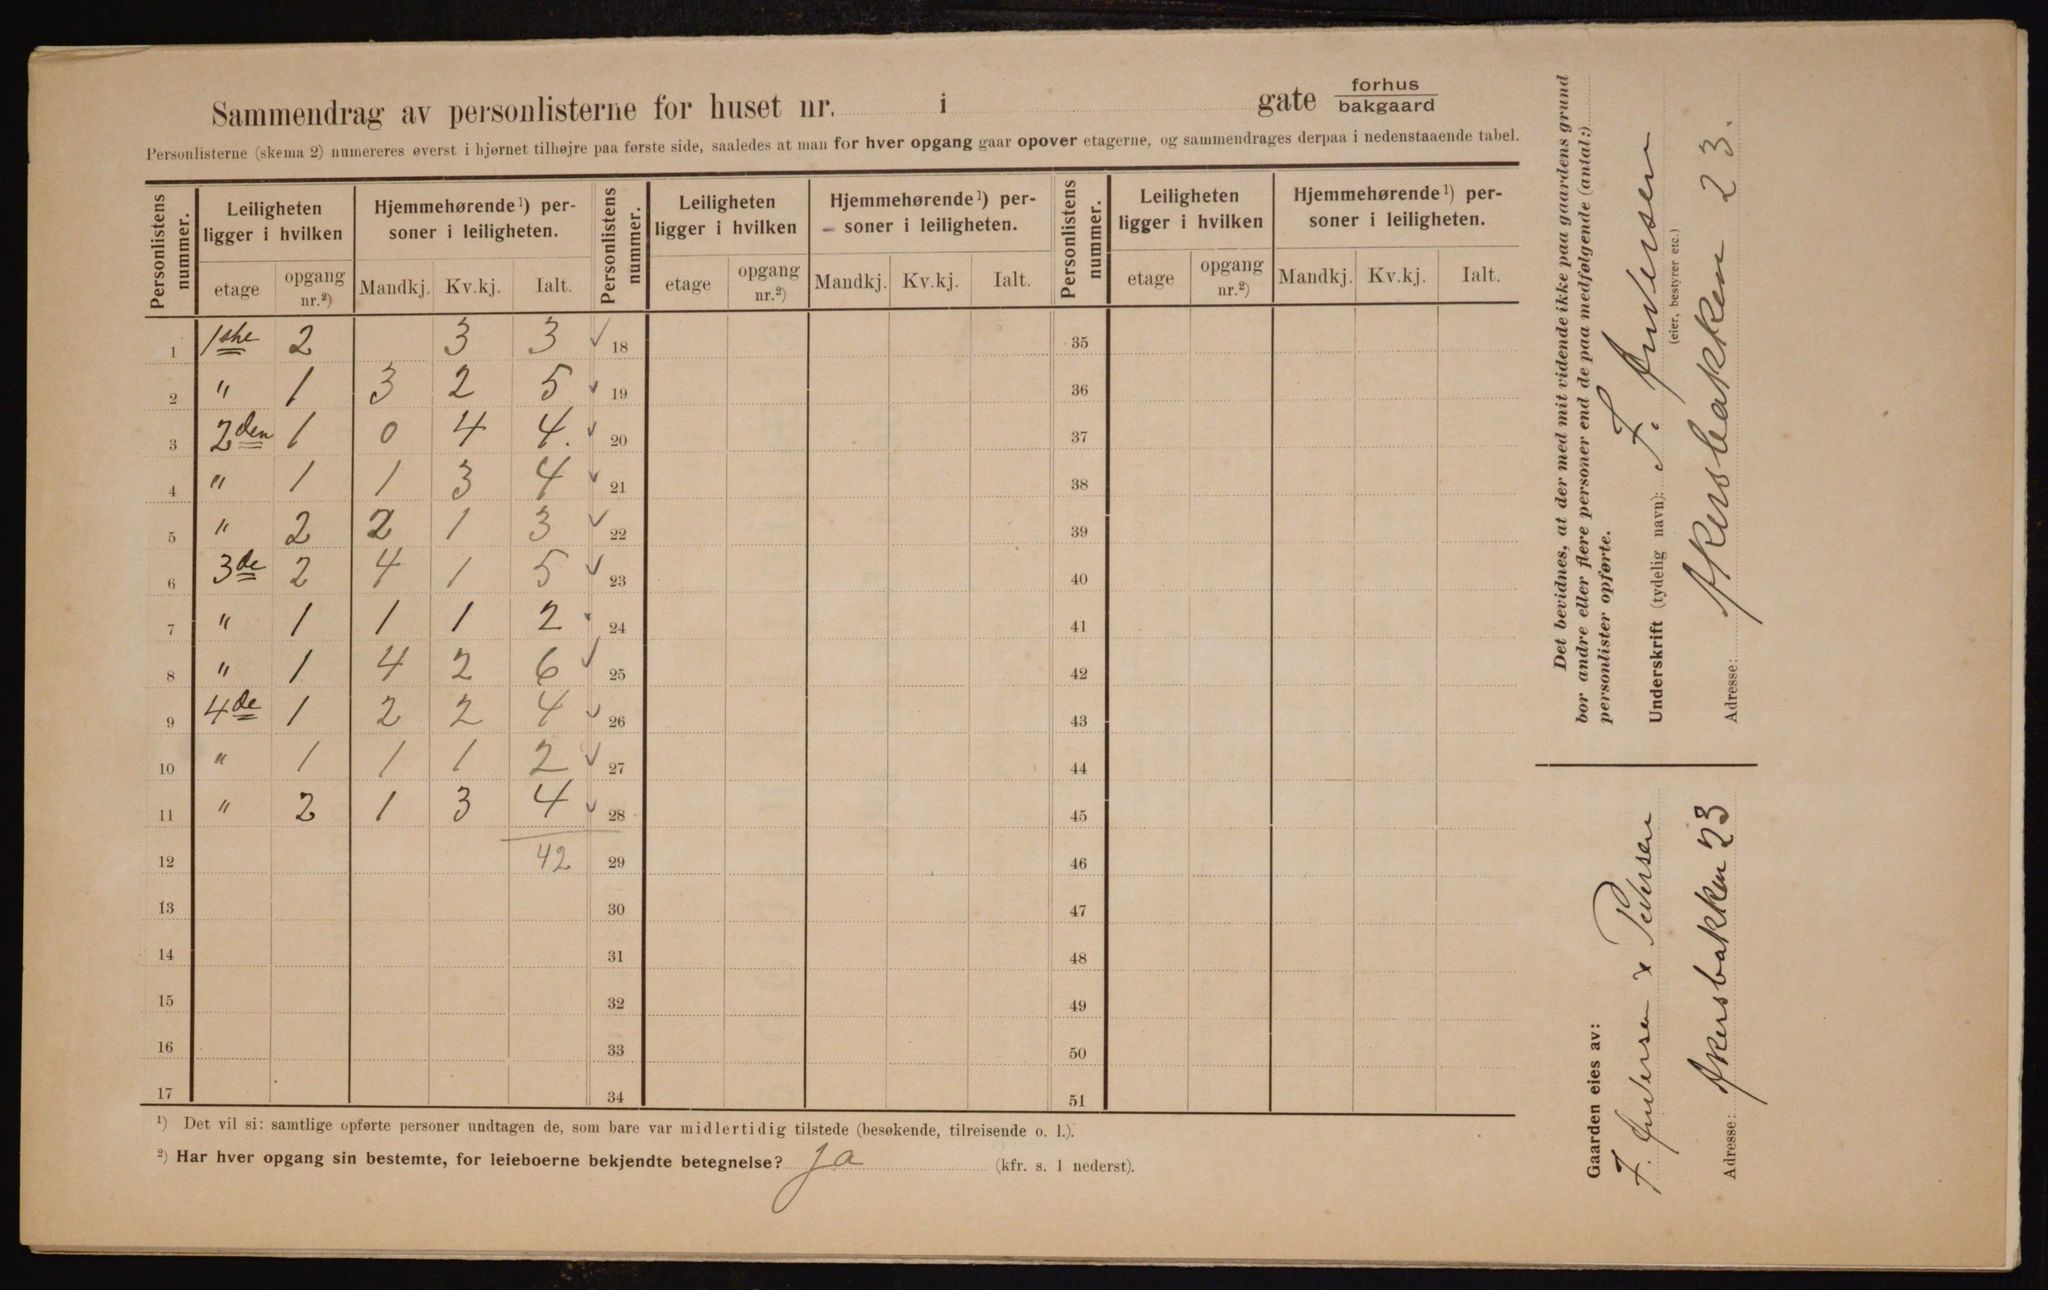 Sammendrag av personlisterne for huset nr. i gate forhus bakgaard
Personlisterne (skema 2) numereres øverst i hjørnet tilhøjre paa første side, saaledes at man for hver opgang gaar opover etagerne, og sammendrages derpaa i nedenstaaende tabel.
Personlistens nummer. Leiligheten ligger i hvilken Hjemmehørende¹) personer i leiligheten. Personlistens nummer. Leiligheten ligger i hvilken Hjemmehørende¹) personer i leiligheten. Personlistens nummer. Leiligheten ligger i hvilken Hjemmehørende¹) personer i leiligheten.
etage opgang nr.²) Mandkj. Kv.kj. Ialt. etage opgang nr.²) Mandkj. Kv.kj. Ialt. etage opgang nr.²) Mandkj. Kv.kj. Ialt.
1 1ste 2 3 3 ✓ 18 35
2 " 1 3 2 5 ✓ 19 36
3 2den 1 0 4 4. ✓ 20 37
4 " 1 1 3 4 ✓ 21 38
5 " 2 2 1 3 ✓ 22 39
6 3de 2 4 1 5 ✓ 23 40
7 " 1 1 1 2 24 41
8 " 1 4 2 6 ✓ 25 42
9 4de 1 2 2 4 ✓ 26 43
10 " 1 1 1 2 ✓ 27 44
11 " 2 1 3 4 ✓ 28 45
12 42 29 46
13 30 47
14 31 48
15 32 49
16 33 50
17 34 51
¹) Det vil si: samtlige opførte personer undtagen de, som bare var midlertidig tilstede (besøkende, tilreisende o. l.).
²) Har hver opgang sin bestemte, for leieboerne bekjendte betegnelse? Ja (kfr. s. 1 nederst).
Det bevidnes, at der med mit vidende ikke paa gaardens grund
bor andre eller flere personer end de paa medfølgende (antal:)
personlister opførte.
Underskrift (tydelig navn): F. Andersen
(eier, bestyrer etc.)
Adresse: Akersbakken 23.
Gaarden eies av:
F. Andersen & Pettersen
Adresse: Akersbakken 23